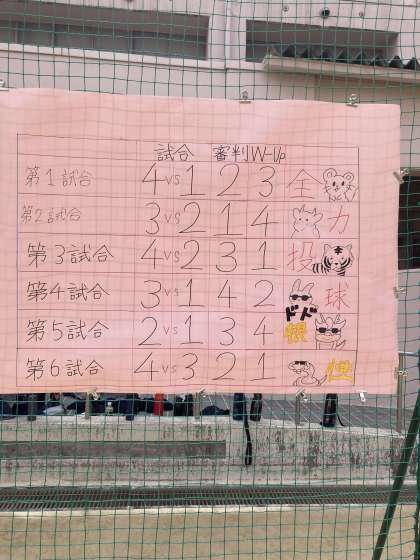 試合 審判 W-Up
第1試合 4 vs 1 2 3 全
第2試合 3 vs 2 1 4 力
第3試合 4 vs 2 3 1 投
第4試合 3 vs 1 4 2 球
ドド
第5試合 2 vs 1 3 4 根
第6試合 4 vs 3 2 1